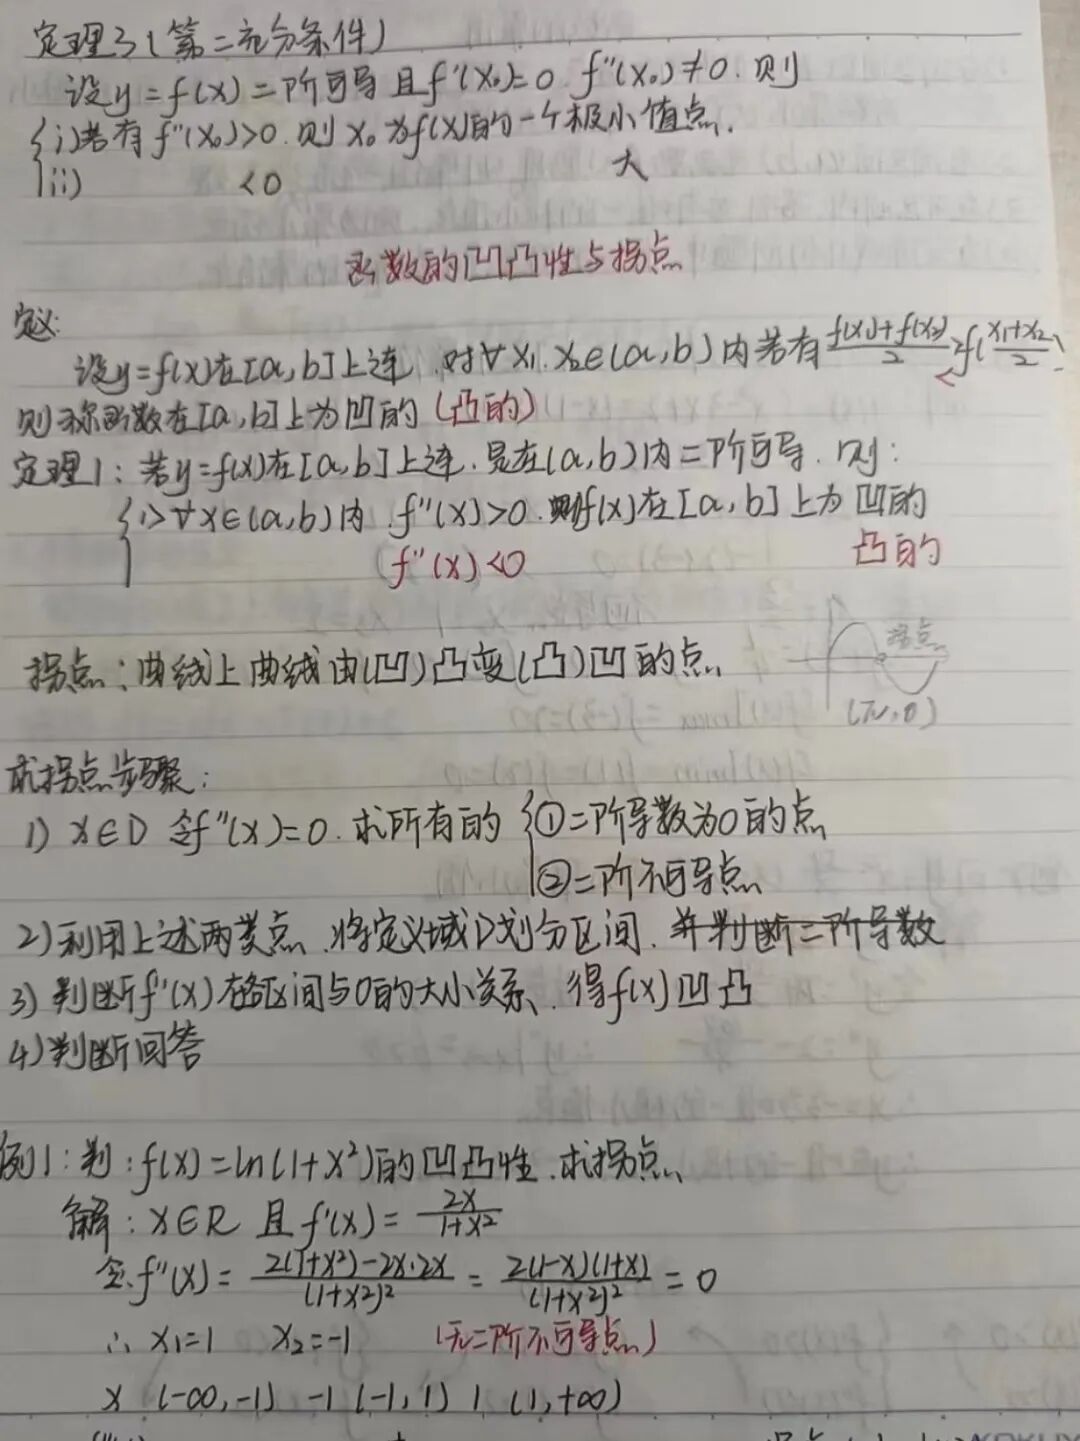 定理3(第二充分条件)
设y=f(x)二阶可导且f'(x₀)=0.f''(x₀)≠0.则
{i)若有f''(x₀)>0.则x₀为f(x)的一个极小值点.
ii) <0 大
函数的凹凸性与拐点
定义:
设y=f(x)在[a,b]上连.对∀x₁.x₂∈(a,b)内若有(f(x₁)+f(x₂))/2>f((x₁+x₂)/2)
<
则称函数在[a,b]上为凹的(凸的)
定理1:若y=f(x)在[a,b]上连.是在(a,b)内二阶可导.则:
{i>∀x∈(a,b)内.f''(x)>0.则f(x)在[a,b]上为凹的
f''(x)<0 凸的
拐点:曲线上曲线由(凹)凸变(凸)凹的点
拐点
(π,0)
求拐点步骤:
1) x∈D 令f''(x)=0.求所有的{①二阶导数为0的点
②二阶不可导点
2)利用上述两类点.将定义域D划分区间.并判断二阶导数
3)判断f''(x)在各区间与0的大小关系、得f(x)凹凸
4)判断回答
例1:判:f(x)=ln(1+x²)的凹凸性.求拐点
解:x∈R 且f'(x)=2x/(1+x²)
令f''(x)=(2(1+x²)-2x·2x)/(1+x²)²=(2(1-x)(1+x))/(1+x²)²=0
∴ x₁=1 x₂=-1 (无二阶不可导点)
x (-∞,-1) -1 (-1,1) 1 (1,+∞)